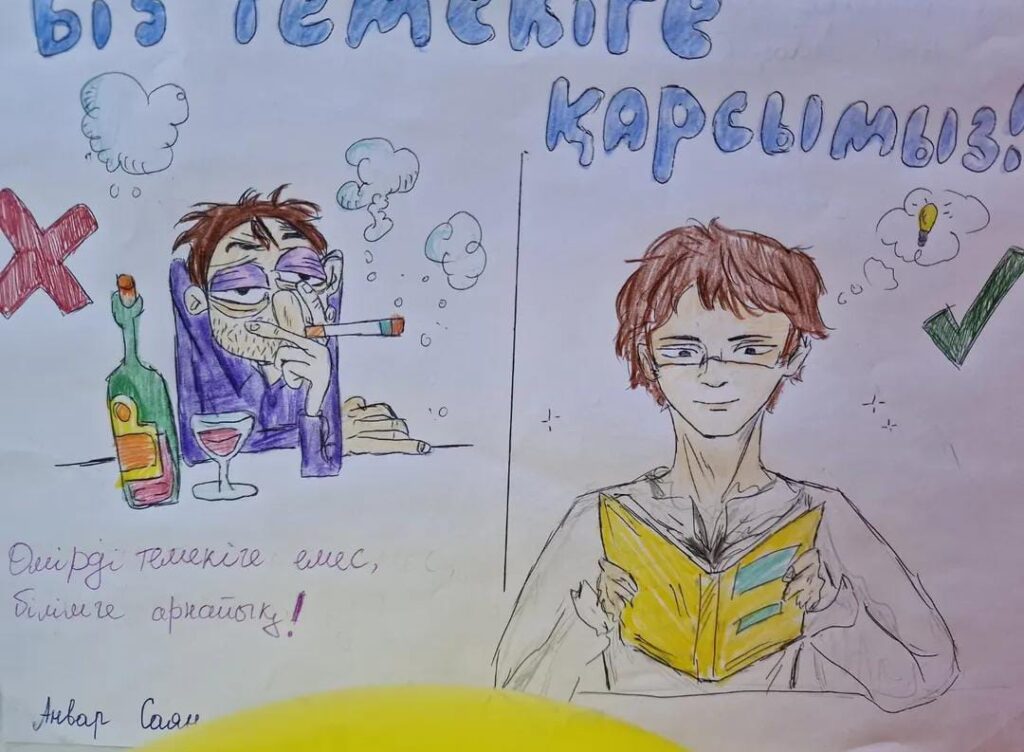 Біз темекіге
қарсымыз!
Өмірді темекіге емес,
білімге арнайық!
Анвар Саян